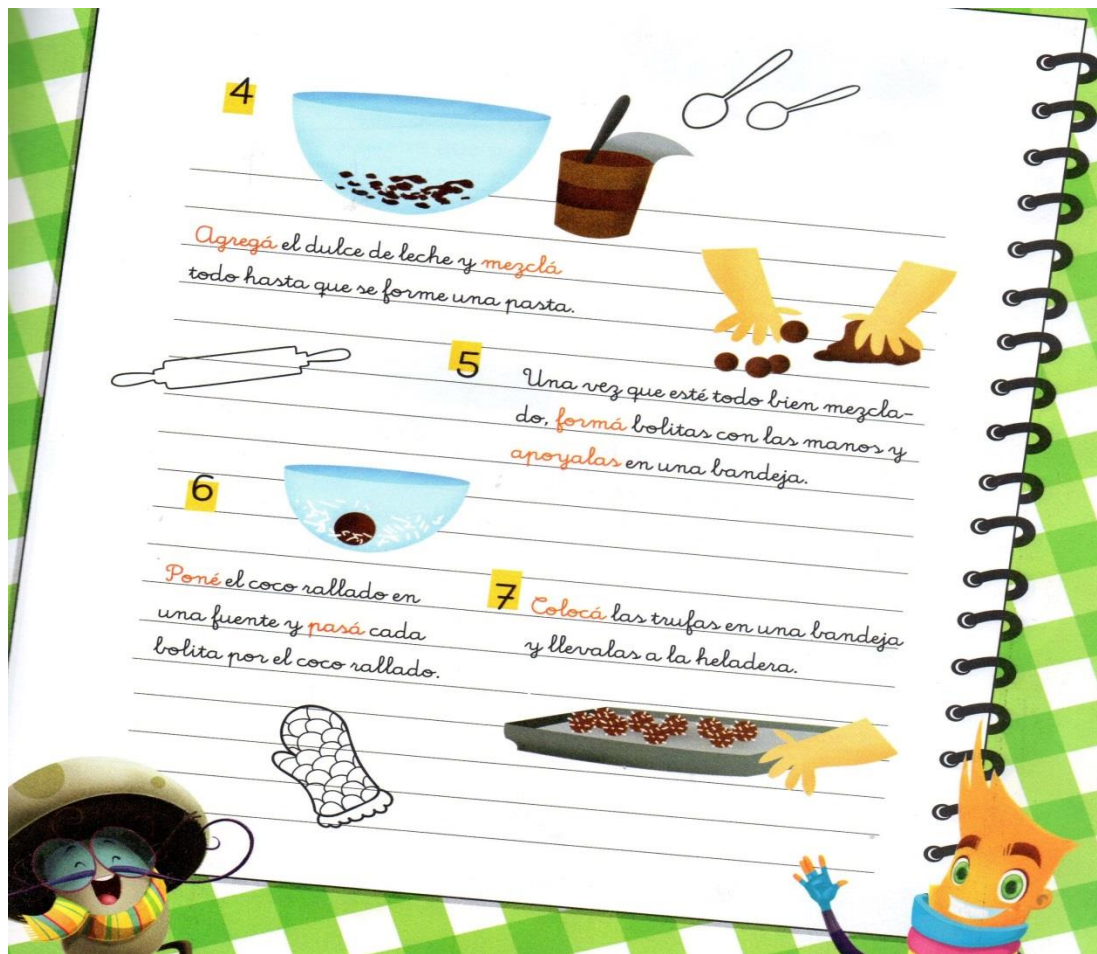 4
Agregá el dulce de leche y mezclá
todo hasta que se forme una pasta.
5
Una vez que esté todo bien mezcla-
do, formá bolitas con las manos y
apoyalas en una bandeja.
6
Poné el coco rallado en
una fuente y pasá cada
bolita por el coco rallado.
7
Colocá las trufas en una bandeja
y llevalas a la heladera.